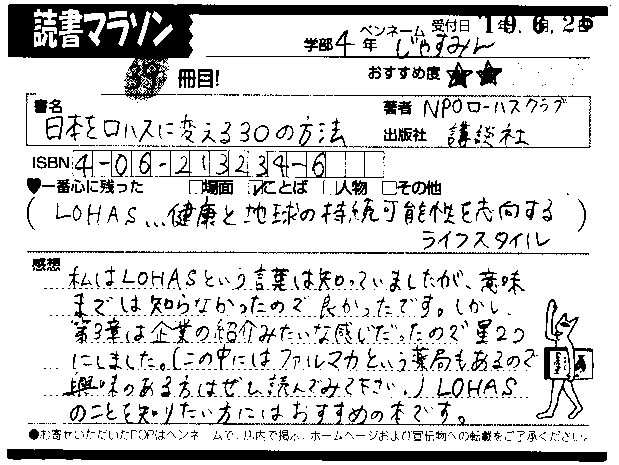 読書マラソン
学部4年
ペンネーム じゃすみん
受付日 19.6.25
39冊目!
おすすめ度 ★★☆
書名 日本をロハスに変える30の方法
著者 NPOローハスクラブ
出版社 講談社
ISBN 4-06-213234-6
♥一番心に残った □場面 ☑ことば □人物 □その他
(LOHAS...健康と地球の持続可能性を志向する
ライフスタイル)
感想
私はLOHASという言葉は知っていましたが、意味
までは知らなかったので良かったです。しかし、
第3章は企業の紹介みたいな感じだったので星2つ
にしました。(この中にはファルマカという薬局もあるので
興味のある方はぜひ読んでみて下さい。)LOHAS
のことを知りたい方にはおすすめの本です。
●お寄せいただいたPOPはペンネームで、店内で掲示、ホームページおよび宣伝物への転載をご了承ください。